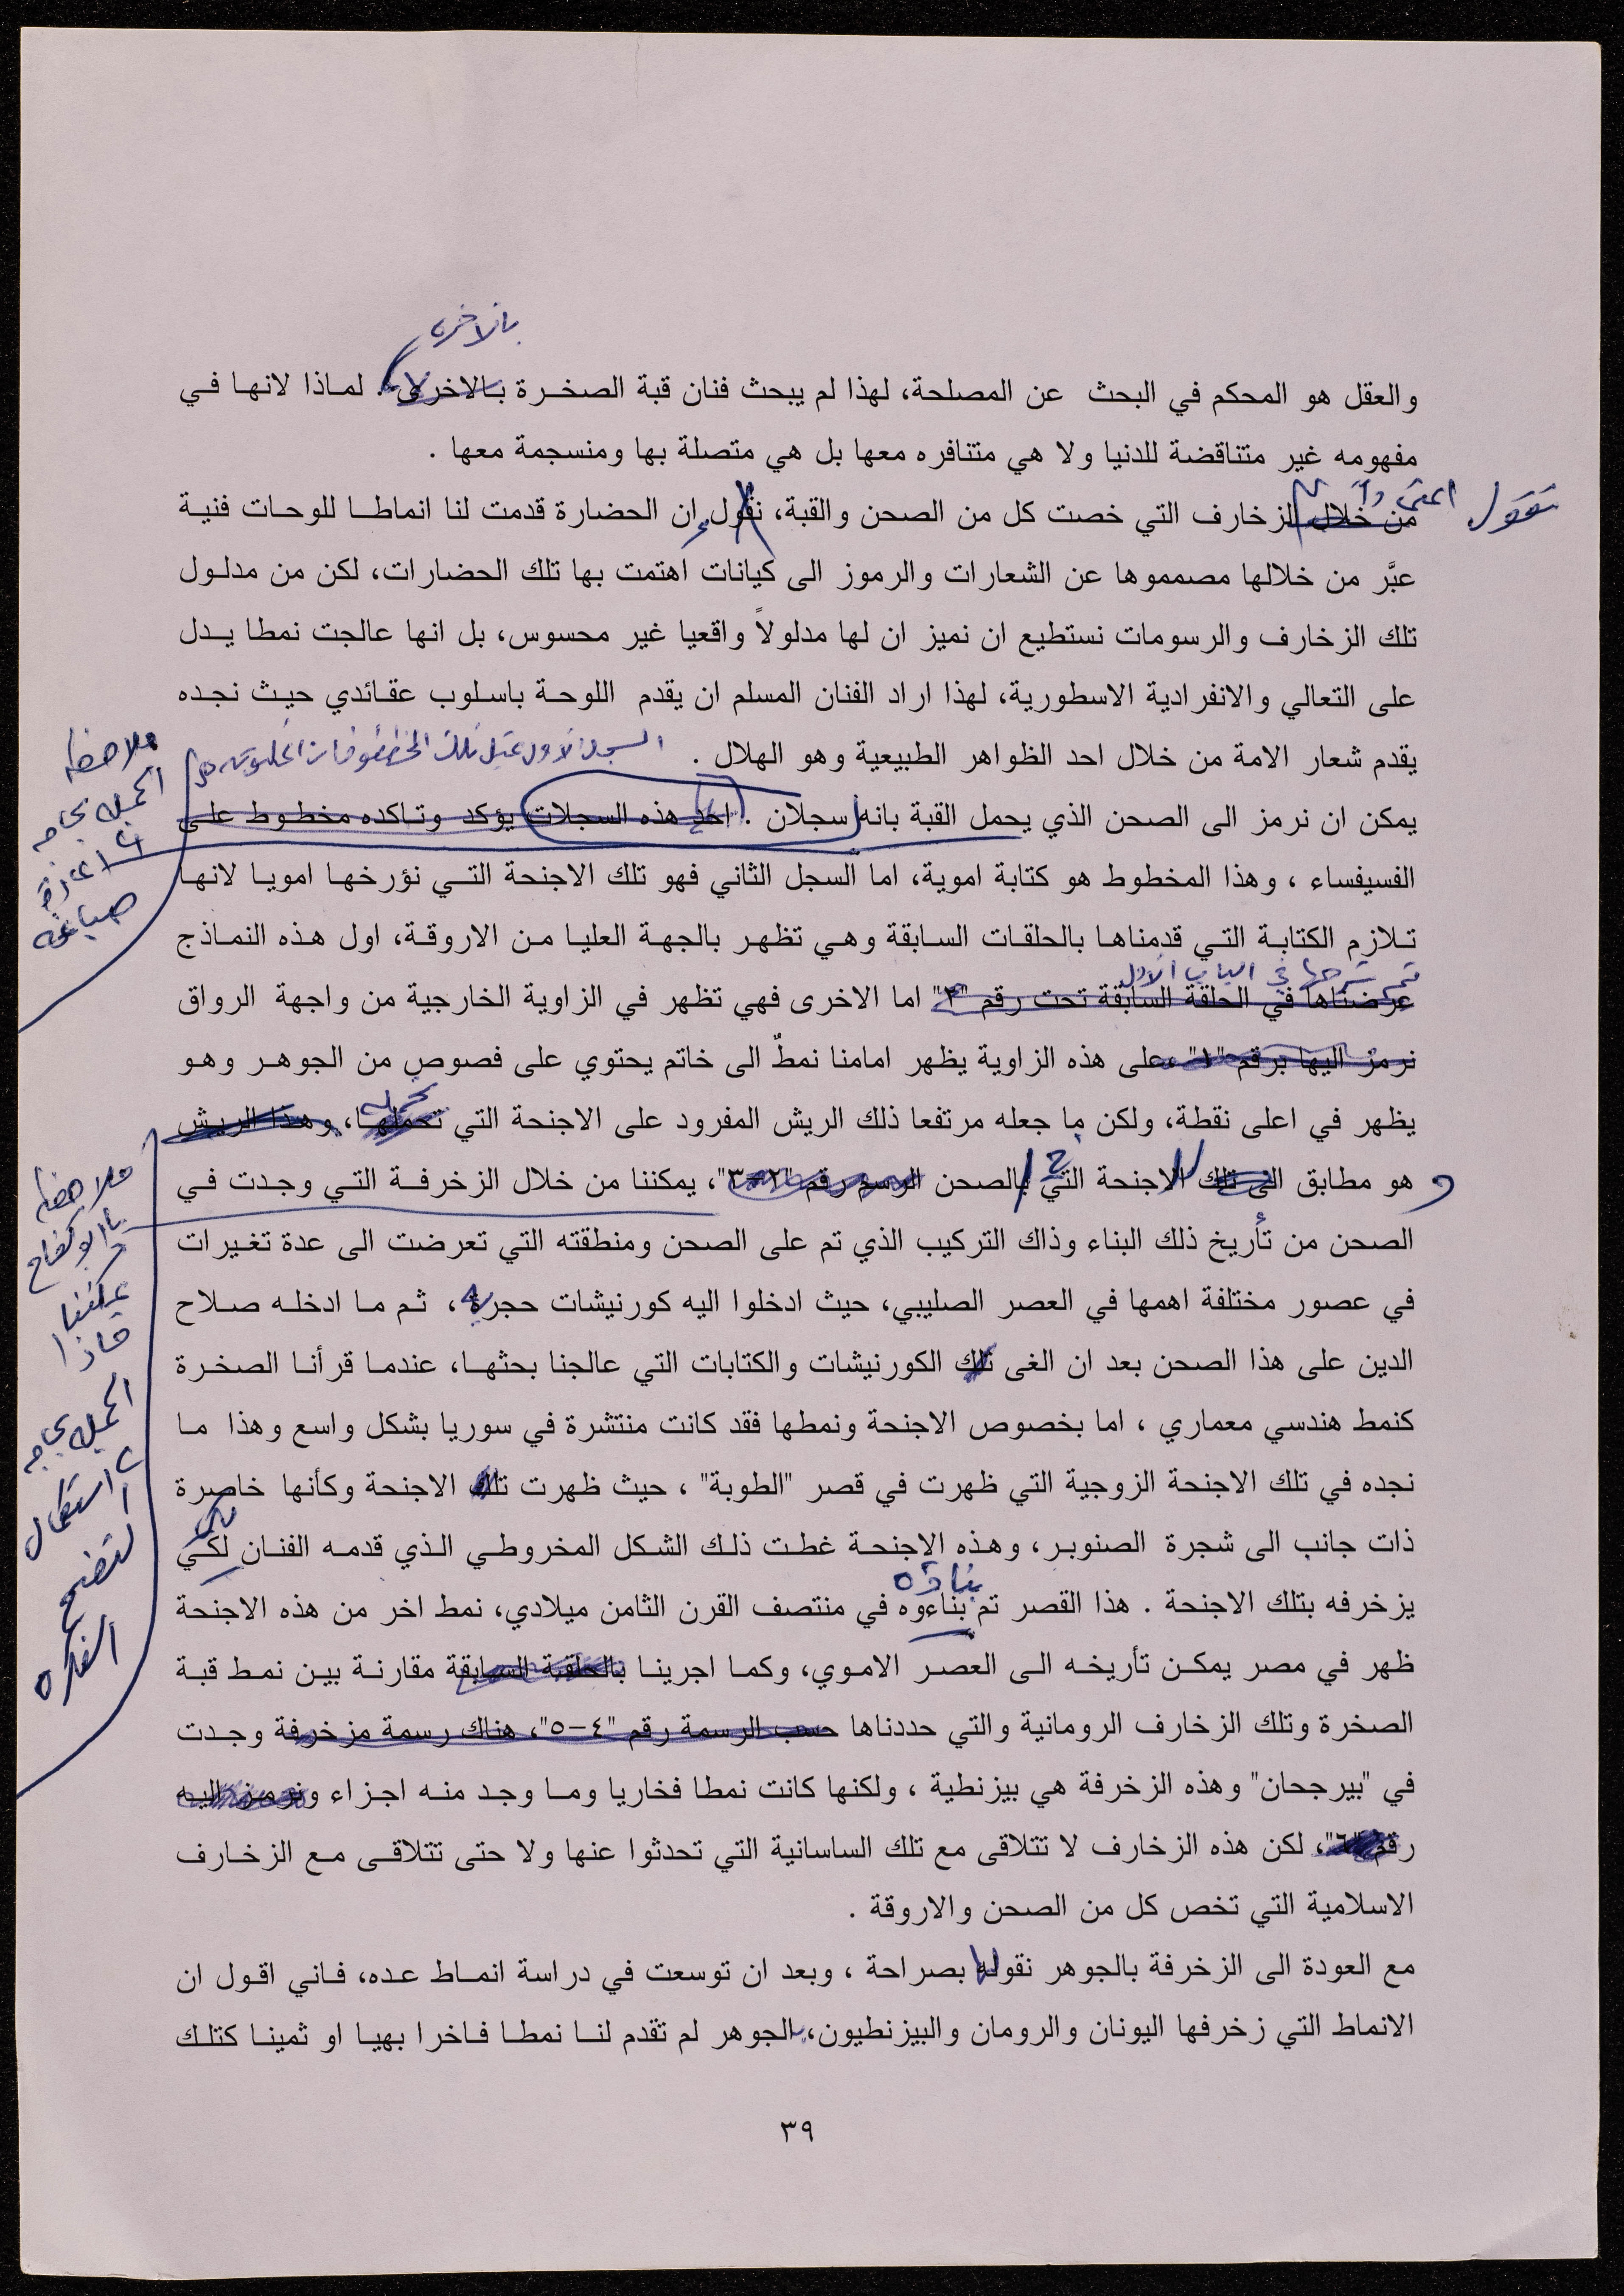 بالاخرى
والعقل هو المحكم في البحث عن المصلحة، لهذا لم يبحث فنان قبة الصخرة بالاخرى. لماذا لانها في
مفهومه غير متناقضة للدنيا ولا هي متنافره معها بل هي متصلة بها ومنسجمة معها .
نقول اعتمادا
من خلال الزخارف التي خصت كل من الصحن والقبة، نقول ان الحضارة قدمت لنا انماطا للوحات فنية
عبَّر من خلالها مصمموها عن الشعارات والرموز الى كيانات اهتمت بها تلك الحضارات، لكن من مدلول
تلك الزخارف والرسومات نستطيع ان نميز ان لها مدلولاً واقعيا غير محسوس، بل انها عالجت نمطا يدل
على التعالي والانفرادية الاسطورية، لهذا اراد الفنان المسلم ان يقدم اللوحة باسلوب عقائدي حيث نجده
يقدم شعار الامة من خلال احد الظواهر الطبيعية وهو الهلال .
السجل الاول تمثل تلك
يمكن ان نرمز الى الصحن الذي يحمل القبة بانه سجلان . احد هذه السجلات يؤكد وتاكده مخطوط على
الفسيفساء ، وهذا المخطوط هو كتابة اموية، اما السجل الثاني فهو تلك الاجنحة التي نؤرخها امويا لانها
تلازم الكتابة التي قدمناها بالحلقات السابقة وهي تظهر بالجهة العليا من الاروقة، اول هذه النماذج
تم شرحها في الباب الاول
عرضناها في الحلقة السابقة تحت رقم "٣" اما الاخرى فهي تظهر في الزاوية الخارجية من واجهة الرواق
نرمز اليها برقم "١" ،على هذه الزاوية يظهر امامنا نمطٌ الى خاتم يحتوي على فصوص من الجوهر وهو
يظهر في اعلى نقطة، ولكن ما جعله مرتفعا ذلك الريش المفرود على الاجنحة التي تحملها، وهذا الريش
تحمله
و هو مطابق الى تلك الاجنحة التي بالصحن الرسم رقم "٢-٣"، يمكننا من خلال الزخرفة التي وجدت في
الصحن من تأريخ ذلك البناء وذاك التركيب الذي تم على الصحن ومنطقته التي تعرضت الى عدة تغيرات
في عصور مختلفة اهمها في العصر الصليبي، حيث ادخلوا اليه كورنيشات حجرية، ثم ما ادخله صلاح
الدين على هذا الصحن بعد ان الغى تلك الكورنيشات والكتابات التي عالجنا بحثها، عندما قرأنا الصخرة
كنمط هندسي معماري ، اما بخصوص الاجنحة ونمطها فقد كانت منتشرة في سوريا بشكل واسع وهذا ما
نجده في تلك الاجنحة الزوجية التي ظهرت في قصر "الطوبة" ، حيث ظهرت تلك الاجنحة وكأنها خاصرة
ذات جانب الى شجرة الصنوبر، وهذه الاجنحة غطت ذلك الشكل المخروطي الذي قدمه الفنان لكي
بناؤه
يزخرفه بتلك الاجنحة . هذا القصر تم بناءوه في منتصف القرن الثامن ميلادي، نمط اخر من هذه الاجنحة
ظهر في مصر يمكن تأريخه الى العصر الاموي، وكما اجرينا بالحلقة السابقة مقارنة بين نمط قبة
الصخرة وتلك الزخارف الرومانية والتي حددناها حسب الرسمة رقم "٤-٥"، هناك رسمة مزخرفة وجدت
في "بيرجحان" وهذه الزخرفة هي بيزنطية ، ولكنها كانت نمطا فخاريا وما وجد منه اجزاء ونرمز اليه
رقم "٦"، لكن هذه الزخارف لا تتلاقى مع تلك الساسانية التي تحدثوا عنها ولا حتى تتلاقى مع الزخارف
الاسلامية التي تخص كل من الصحن والاروقة .
مع العودة الى الزخرفة بالجوهر نقولها بصراحة ، وبعد ان توسعت في دراسة انماط عده، فاني اقول ان
الانماط التي زخرفها اليونان والرومان والبيزنطيون، الجوهر لم تقدم لنا نمطا فاخرا بهيا او ثمينا كتلك
ملاحظة
الجملة بحاجه
الى اعادة
صياغه
ملاحظة
يمكننا
ماذا
الجملة بحاجه
الى استكمال
لتتضح
الفكرة
٣٩